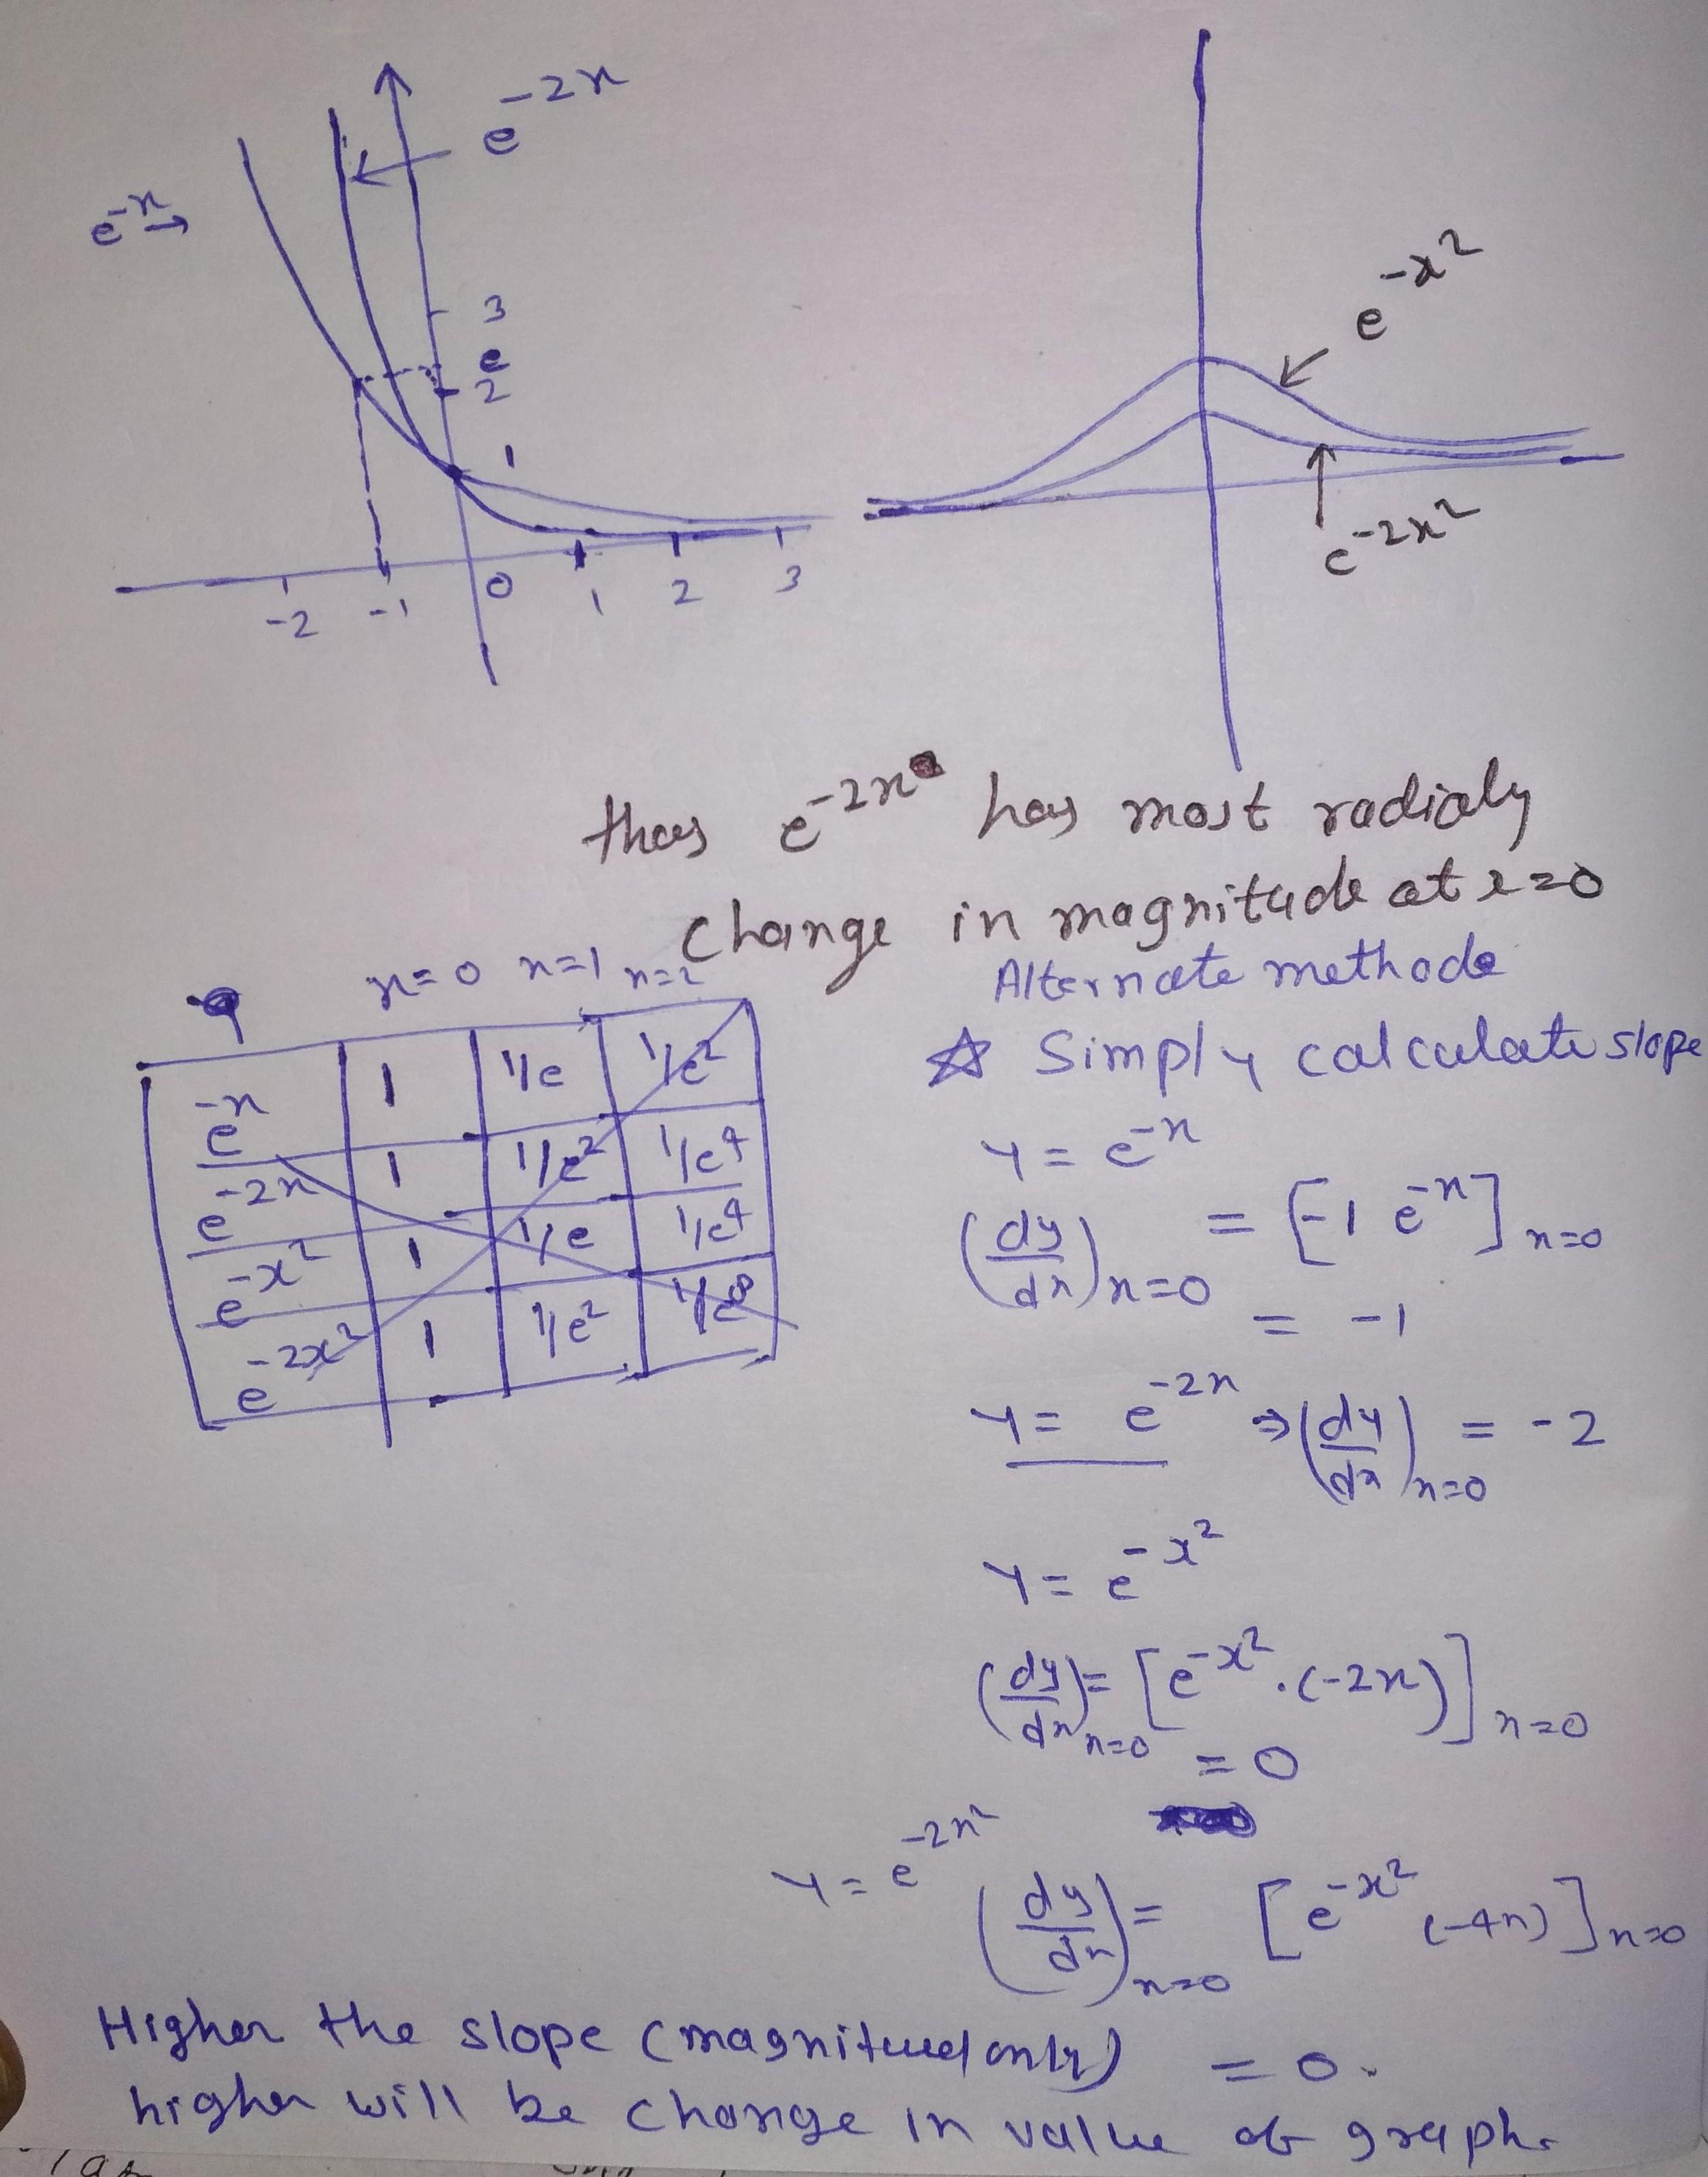 e^-2x
e^-x →
3
e
2
1
-2 -1 0 1 2 3
e^-x^2
e^-2x^2
thus e^-2x has most radialy
change in magnitude at x=0
x=0 x=1 x=2
e^-x 1 1/e 1/e^2
e^-2x 1 1/e^2 1/e^4
e^-x^2 1 1/e 1/e^4
e^-2x^2 1 1/e^2 1/e^8
Alternate methode
☆ Simply calculate slope
y = e^-x
(dy/dx)x=0 = [-1 e^-x]x=0
= -1
y = e^-2x ⇒ (dy/dx)x=0 = -2
y = e^-x^2
(dy/dx)x=0 = [e^-x^2 . (-2x)]x=0
= 0
y = e^-2x^2
(dy/dx)x=0 = [e^-x^2 (-4x)]x=0
= 0.
Higher the slope (magnitued only)
higher will be change in value of graph.